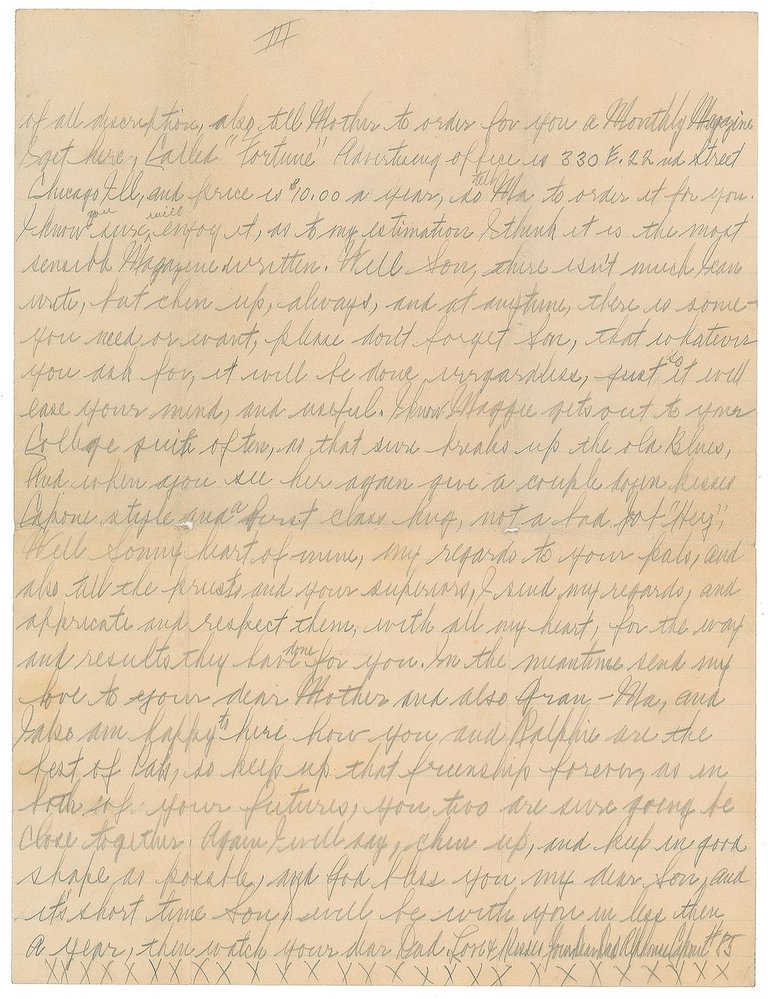 III
of all discription, also till Mother to order for you a Monthly Magazine
I get here, Called "Fortune" Advertising office is 330 E. 22nd Street
Chicago Ill, and price is $10.00 a year, so tell Ma to order it for you.
I know you sure, will enjoy it, as to my estimation I think it is the most
sensible Magazine written. Well Son, there isn't much I can
write, but chin up, always, and at anytime, there is some-
you need or want, please don't forget Son, that whatever
you ask for, it will be done, irrgardless, just so it will
ease your mind, and useful. I know Maggie gets out to your
College quite often, as that sure breaks up the old Blues,
And when you see her again give a couple dozen kisses
Capone style and a first class hug, not a bad job "Hey",
Well Sonny heart of mine, my regards to your pals, and
also till the priests and your superiors, I send my regards, and
appricate and respect them, with all my heart, for the way
and results they have done for you. In the meantime send my
love to your dear Mother and also Gran-Ma, and
I also am happy to here how you and Ralphie are the
best of Pals, so keep up that frienship forever, as in
both of your futures, you two are sure going be
close together. Again I will say, chin up, and keep in good
shape as possble, and God bless you, my dear Son, and
it's short time Son, I will be with you in less then
a year, then watch your dear Dad. Love & Kisses Your Dear Dad Alphonse Capone #85
X X X X X X X X X X X X X X X X X X X X X X X X X X X X